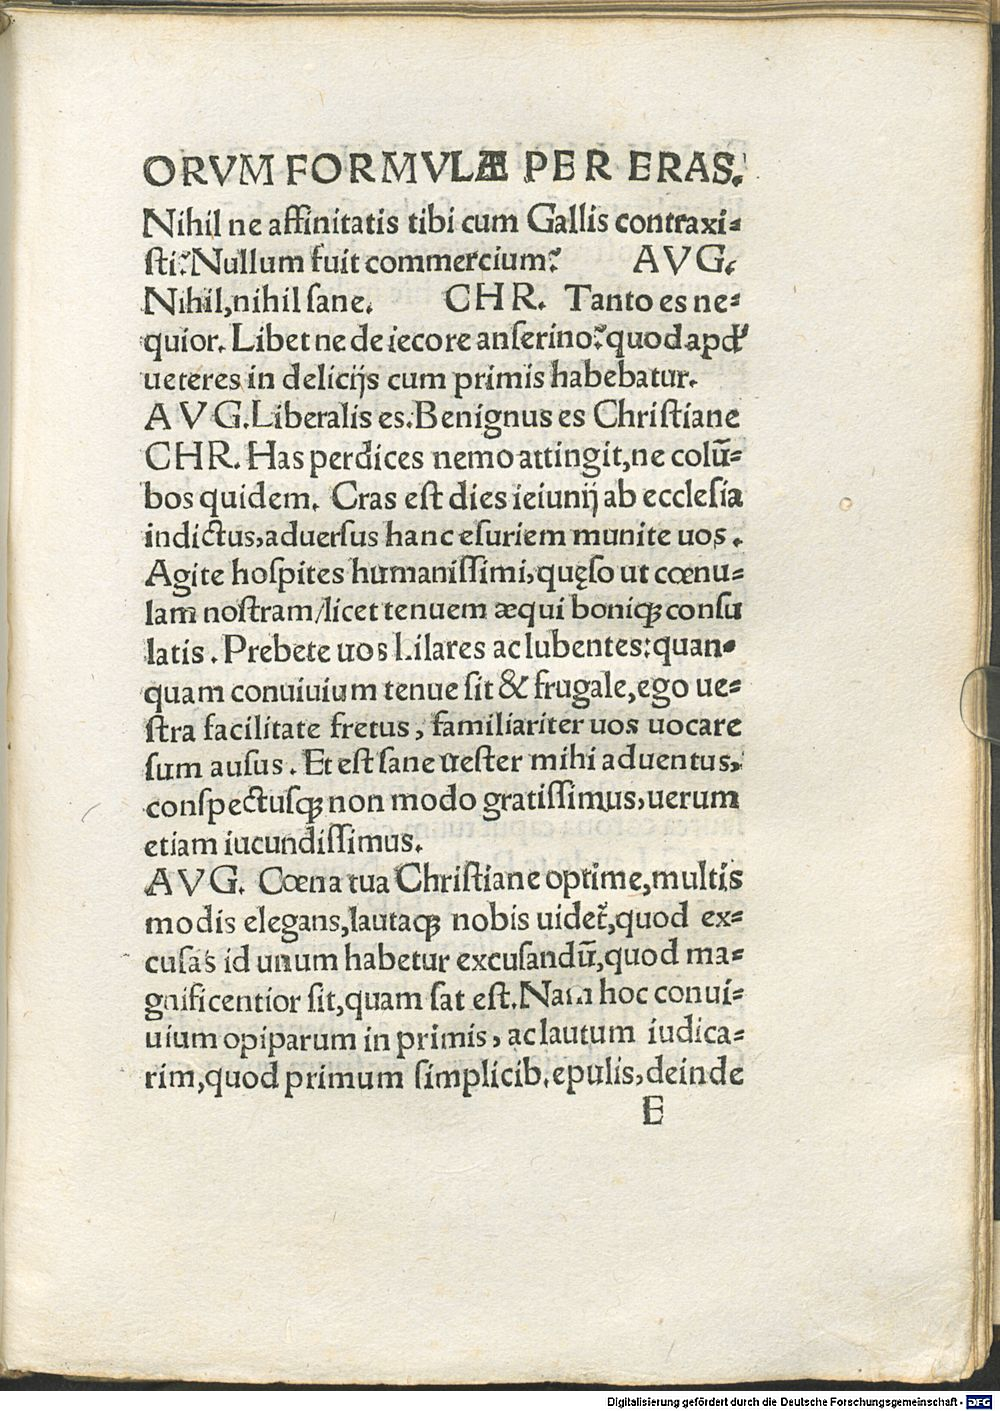 ORVM FORMVLÆ PER ERAS.
Nihil ne affinitatis tibi cum Gallis contraxi⸗
ſti? Nullum fuit commercium? AVG.
Nihil, nihil ſane. CHR. Tanto es ne⸗
quior. Libet ne de iecore anſerino? quod apd'
ueteres in delicijs cum primis habebatur.
AVG. Liberalis es. Benignus es Chriſtiane
CHR. Has perdices nemo attingit, ne colū⸗
bos quidem. Cras eſt dies ieiunij ab eccleſia
indictus, aduerſus hanc eſuriem munite uos.
Agite hoſpites humaniſſimi, quęſo ut cœnu⸗
lam noſtram/ licet tenuem æqui boniqꝫ conſu
latis. Prebete uos Lilares ac lubentes: quan⸗
quam conuiuium tenue ſit & frugale, ego ue⸗
ſtra facilitate fretus, familiariter uos uocare
ſum auſus. Et eſt ſane ueſter mihi aduentus,
conſpectuſqꝫ non modo gratiſſimus, uerum
etiam iucundiſſimus.
AVG. Cœna tua Chriſtiane optime, multis
modis elegans, lautaqꝫ nobis uidet̃, quod ex⸗
cuſas id unum habetur excuſandū, quod ma⸗
gnificentior ſit, quam ſat eſt. Nam hoc conui⸗
uium opiparum in primis, ac lautum iudica⸗
rim, quod primum ſimplicib. epulis, deinde
E
Digitalisierung gefördert durch die Deutsche Forschungsgemeinschaft - DFG